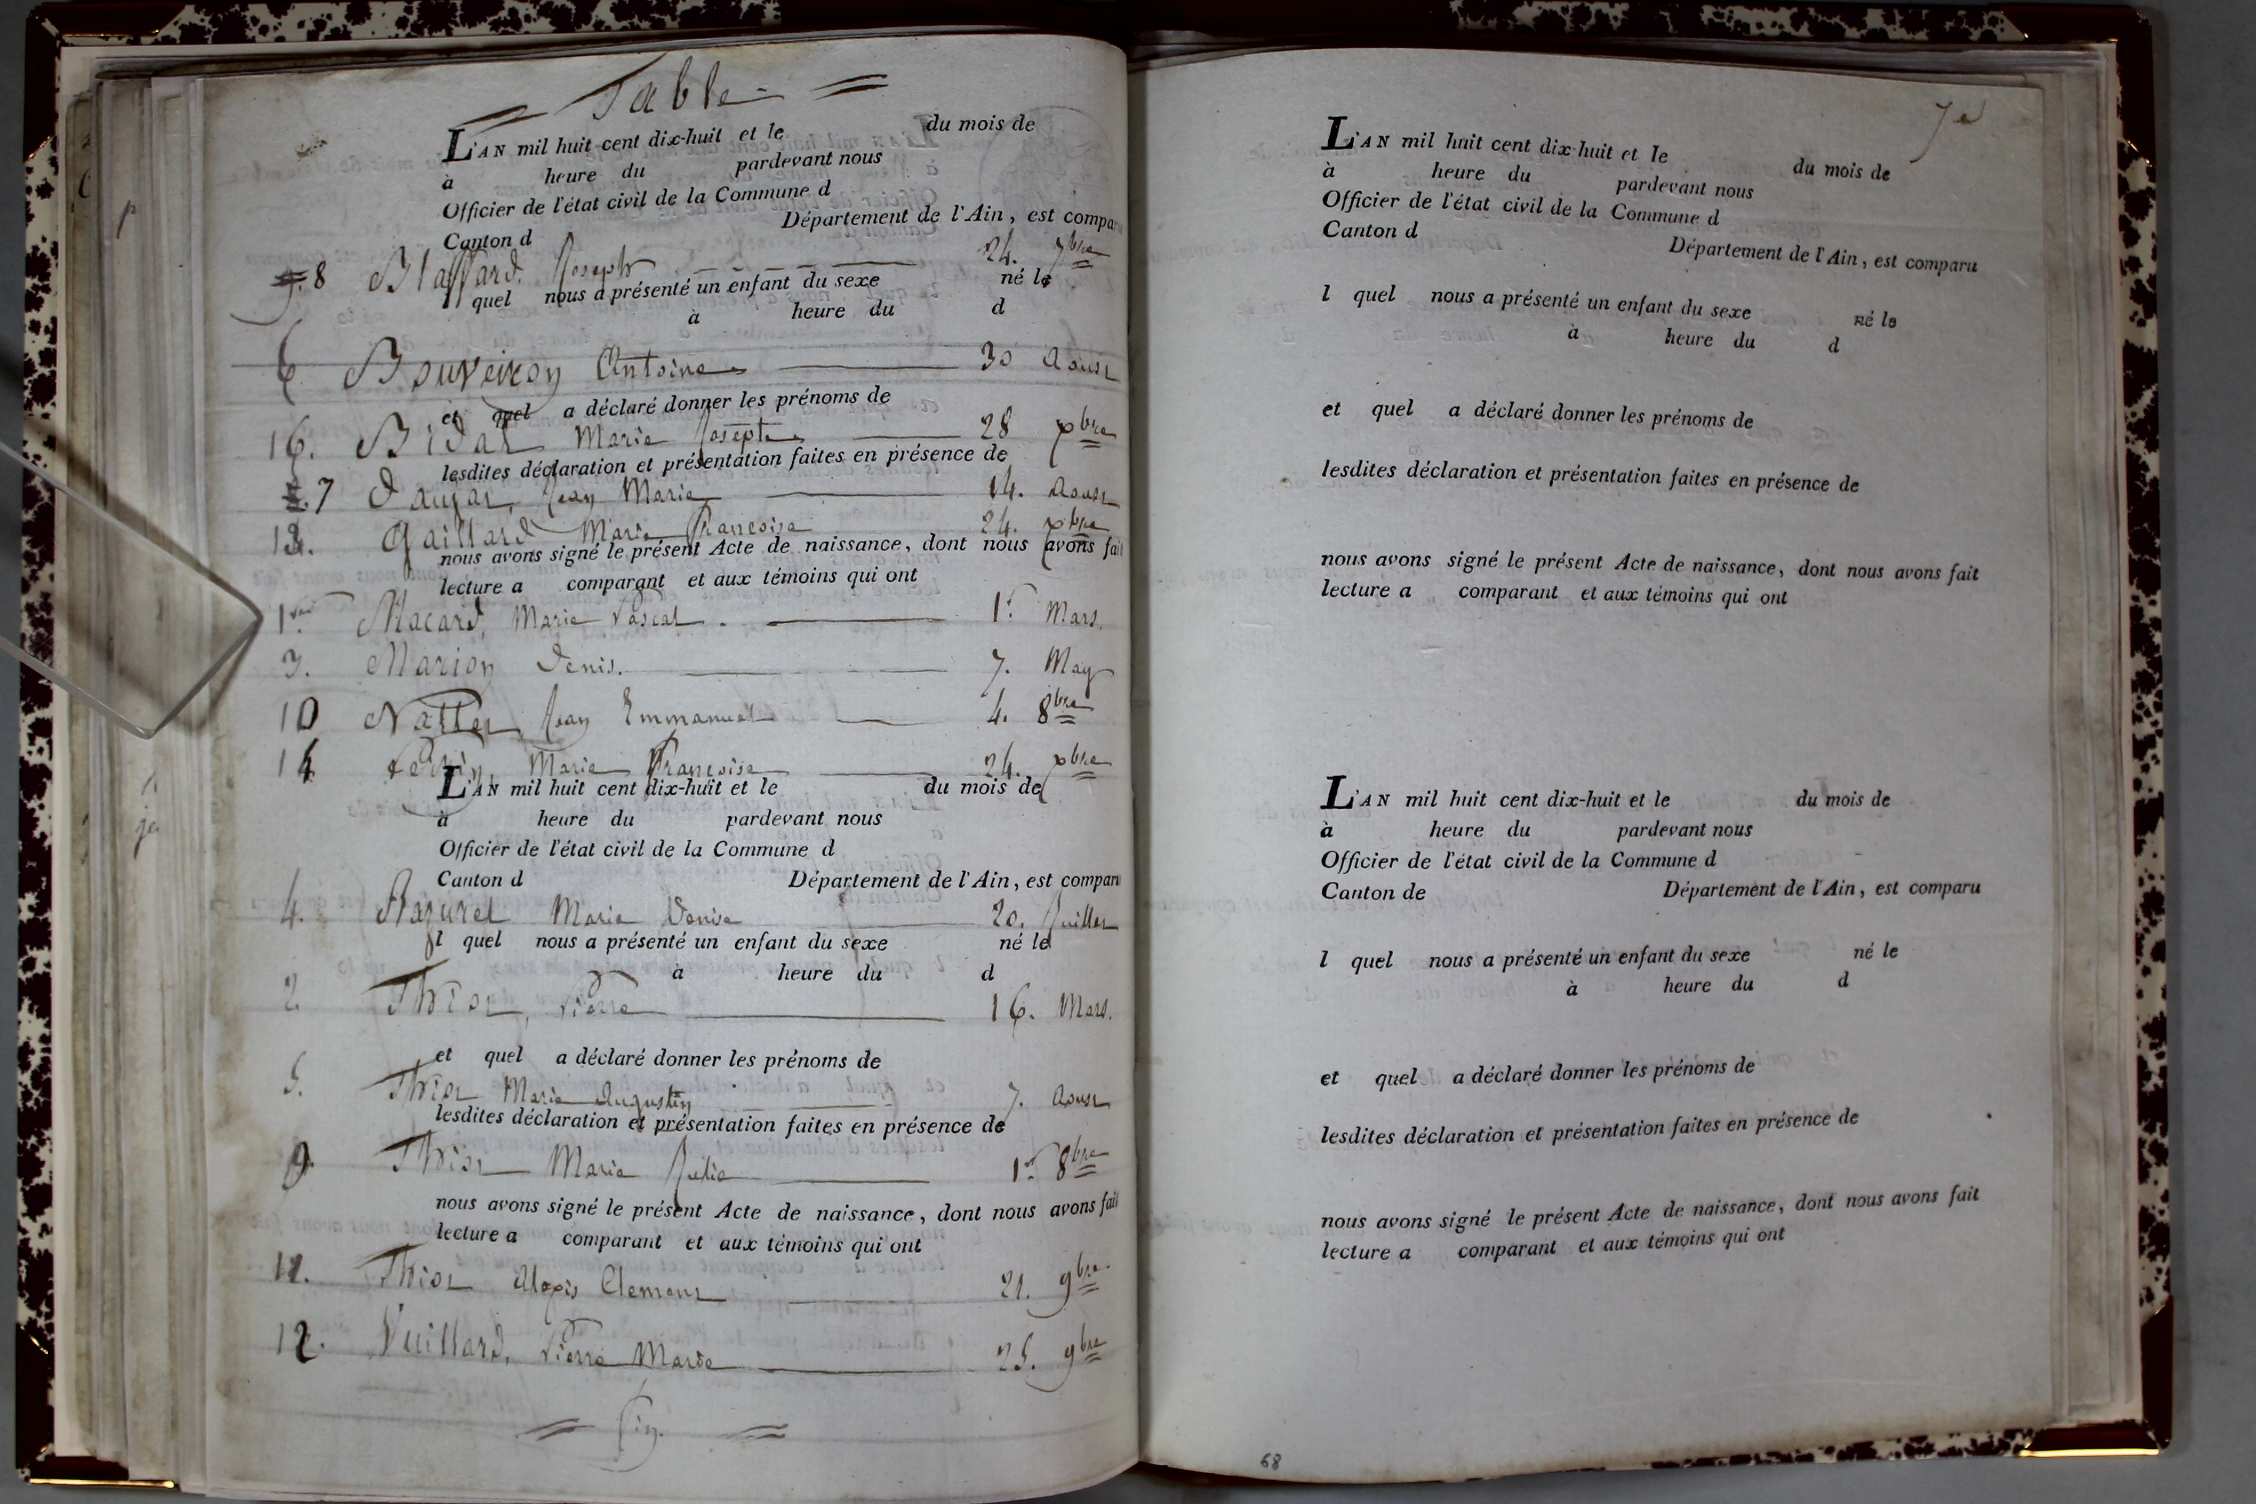 Table
L'AN mil huit cent dix-huit et le du mois de
à heure du pardevant nous
Officier de l'état civil de la Commune d
Canton d Département de l'Ain, est comparu
8 Blaffard. Joseph 24. 7bre
quel nous a présenté un enfant du sexe né le
à heure du d
6 Bouveiron Antoine 30 Aoust
et quel a déclaré donner les prénoms de
16. Bidal Marie Josephe 28 xbre
lesdites déclaration et présentation faites en présence de
7 Daujat, Jean Marie 14. Aoust
13. Gaillard Marie Françoise 24. xbre
nous avons signé le présent Acte de naissance, dont nous avons fait
lecture a comparant et aux témoins qui ont
1er Macard, Marie Pascal. 1er Mars.
3. Marion Denis. 7. May
10 Nallet, Jean Emmanuel 4. 8bre
14 Perrin, Marie Françoise 24. xbre
L'AN mil huit cent dix-huit et le du mois de
à heure du pardevant nous
Officier de l'état civil de la Commune d
Canton d Département de l'Ain, est comparu
4. Razurel Marie Denise 20. Juillet
l quel nous a présenté un enfant du sexe né le
à heure du d
2 Thiot, Pierre 16. Mars.
et quel a déclaré donner les prénoms de
5. Thiot Marie Augustin 7. Aoust
lesdites déclaration et présentation faites en présence de
9 Thiot Marie Julie 1er 8bre
nous avons signé le présent Acte de naissance, dont nous avons fait
lecture a comparant et aux témoins qui ont
11. Thiot Alexis Clement 21. 9bre
12. Vuillard, Pierre Marie 25. 9bre
fin.
L'AN mil huit cent dix-huit et le du mois de
à heure du pardevant nous
Officier de l'état civil de la Commune d
Canton d Département de l'Ain, est comparu
l quel nous a présenté un enfant du sexe né le
à heure du d
et quel a déclaré donner les prénoms de
lesdites déclaration et présentation faites en présence de
nous avons signé le présent Acte de naissance, dont nous avons fait
lecture a comparant et aux témoins qui ont
L'AN mil huit cent dix-huit et le du mois de
à heure du pardevant nous
Officier de l'état civil de la Commune d
Canton de Département de l'Ain, est comparu
l quel nous a présenté un enfant du sexe né le
à heure du d
et quel a déclaré donner les prénoms de
lesdites déclaration et présentation faites en présence de
nous avons signé le présent Acte de naissance, dont nous avons fait
lecture a comparant et aux témoins qui ont
68